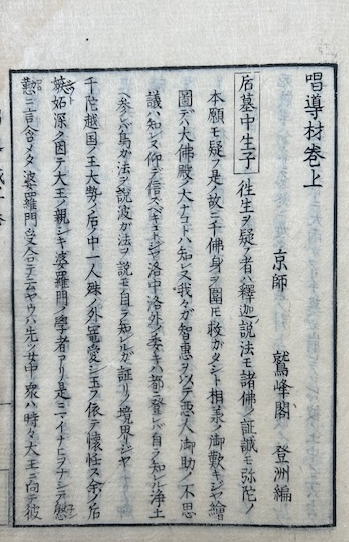 唱導材巻上
京師 鷲峰閣 登洲編
后墓中生子 徃生ヲ疑フ者ハ釋迦ノ説法モ諸佛ノ証誠モ弥陀ノ
本願モ疑フ是故ニ千佛身ヲ圍モ救ガタシト相羨ノ御歎キジヤ繪
圖デハ大佛殿ノ大ナコトハ知レヌ我々ガ智惠ヲ以テ悪人御助ノ不思
議ハ知レヌ仰デ信スベキコトジヤ洛中洛外ノ委キハ都ニ登レバ自ラ知レル浄土
ヘ参レバ鳥ガ法ヲ説波ガ法ヲ説モ自ラ知レルガ証リノ境界ジヤ
千陀越国ノ王大勢ノ后ノ中一人殊ノ外寵愛シ玉フ依テ懐姙ス余ノ后
嫉妬深ク因テ大王ノ親シキ婆羅門ノ學者アリ是ニマイナヒヲナシテ慇
懃ニ言含メタ婆羅門受合テ云ヤウハ先ツ女中衆ハ時々大王ニ向テ彼